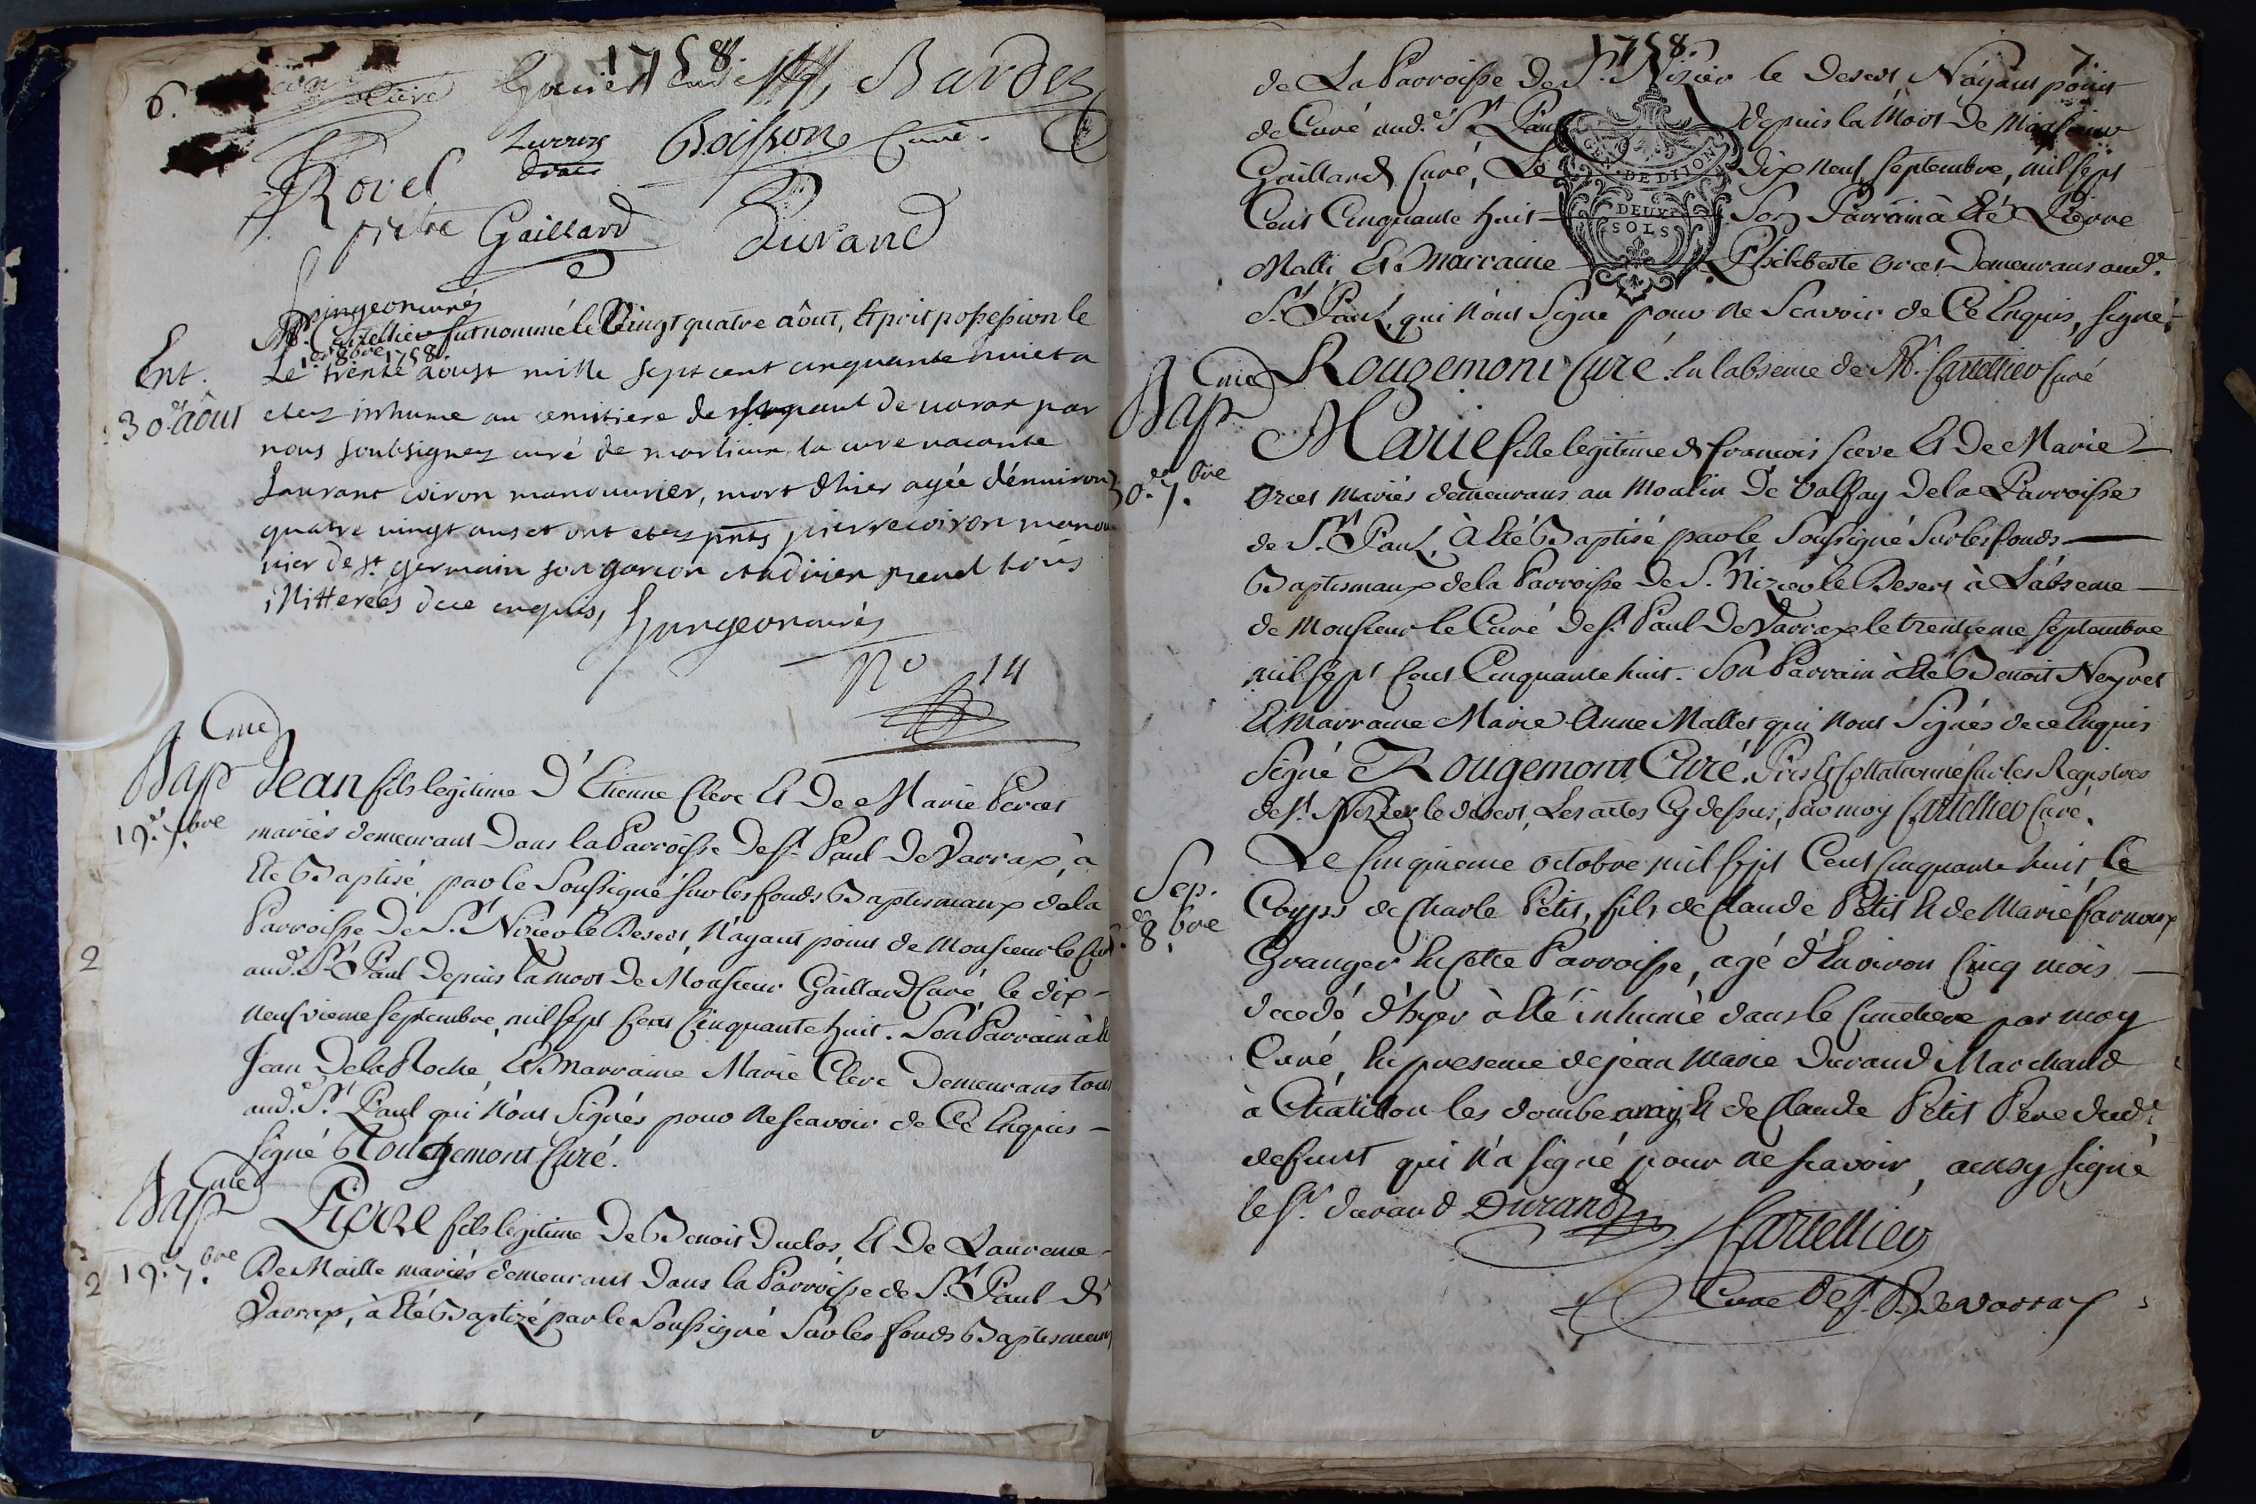 6.
1758
curé
Bardez
Boisson Curé.
Rovel
prêtre Gaillard Durand
Mr. Cartellier fut nommé le Vingt quatre aôut, Et prit possession le
1er 8bre 1758.
Ent.
30e. aôut
Le trente aoust mille sept cent cinquante huict a
etez inhumé au cemitiere de st paul de varax par
nous soubsignez curé de marlieux la cure vacante
laurant coiron manouvrier, mort d'hier agée d'environ
quatre vingt ans et ont etez pnts pierre coiron manou
vrier de st germain son garcon et
illitterées de ce enquis,
No 14
Bap
Cme
19e. 7.bre
Jean fils legitime D'Etienne Clere Et De Marie Perret
mariés demeurant Dans la Parroisse De St. Paul De Varrax, à
Eté Baptisé, par le Soussigné sur les fonds Baptismaux de la
Parroisse De St. Nizier le Desert, N'ayant point de Monsieur le Curé
aud. St. Paul Depuis la mort De Monsieur Gaillard Curé, le dix-
neufvieme septembre, mil sept Cent Cinquante huit. Son Parrain à Eté
Jean De la Roche, Et Marraine Marie Clere Demeurans tous
aud. St. Paul qui n'ont Signés pour ne scavoir de Ce Enquis -
signé Rougemont Curé.
Bap
Cme
2 19e. 7.bre
2
Pierre fils legitime De Benoit Duclos, Et De Laurence
De Maille mariés demeurant Dans la Parroisse de St. Paul de
Varrax, à Eté Baptizé par le Soussigné Sur les fonds Baptismaux
1758.
7.
de La Parroisse De St. Nizier le Desert, N'ayant point
de Curé aud. St. Paul depuis la Mort De Monsieur
Gaillard Curé, Le dix neuf septembre, mil sept
Cent Cinquante huit - Son Parrain à Eté Pierre
Malli Et Marraine Philiberte Orcet Demeurans aud.
St. Paul, qui n'ont Signé pour ne Scavoir de Ce Enquis, signé
GEN. DE DIJON
DEUX
SOLS
Rougemont Curé. En l'absence de Mr. Cartellier Curé
Bap
Cme
30e. 7.bre
Marie fille legitime de francois seve Et De Marie
Orcet mariés demeurans au Moulin De Valfay De la Parroisse
de St. Paul, à Eté Baptisé par le Soussigné Sur les fonds
Baptismaux de la Parroisse De St. Nizier le Desert à L'absence
de Monsieur le Curé de St. Paul De Varrax le trentieme septembre
mil sept Cent Cinquante huit. Son Parrain à Eté Benoit Neyret
Et Marraine Marie Anne Mallet qui n'ont Signés de ce Enquis
Signé Rougemont Curé. Pris Et Collationné sur les Registres
de St. Nizier le desert, Les actes Cy dessus, Par moy Cartellier Curé.
Sep.
8.bre
Le Cinqieme octobre mil sept Cent Cinquante huit, le
Corps de Charle Petit, fils de Claude Petit Et de Marie farnoux
Granger En Cette Parroisse, agé d'Environ Cinq mois
decedé d'hyer à Eté inhumé dans le Cimetiere par moy
Curé, En presence de jean Marie Durand Marchand
à Chatillon les dombe Et de Claude Petit Pere dud.
defunt qui n'a signé pour ne scavoir, a
signé
le Sr. durand Durand
Cartellier
Curé De St. P. De varrax